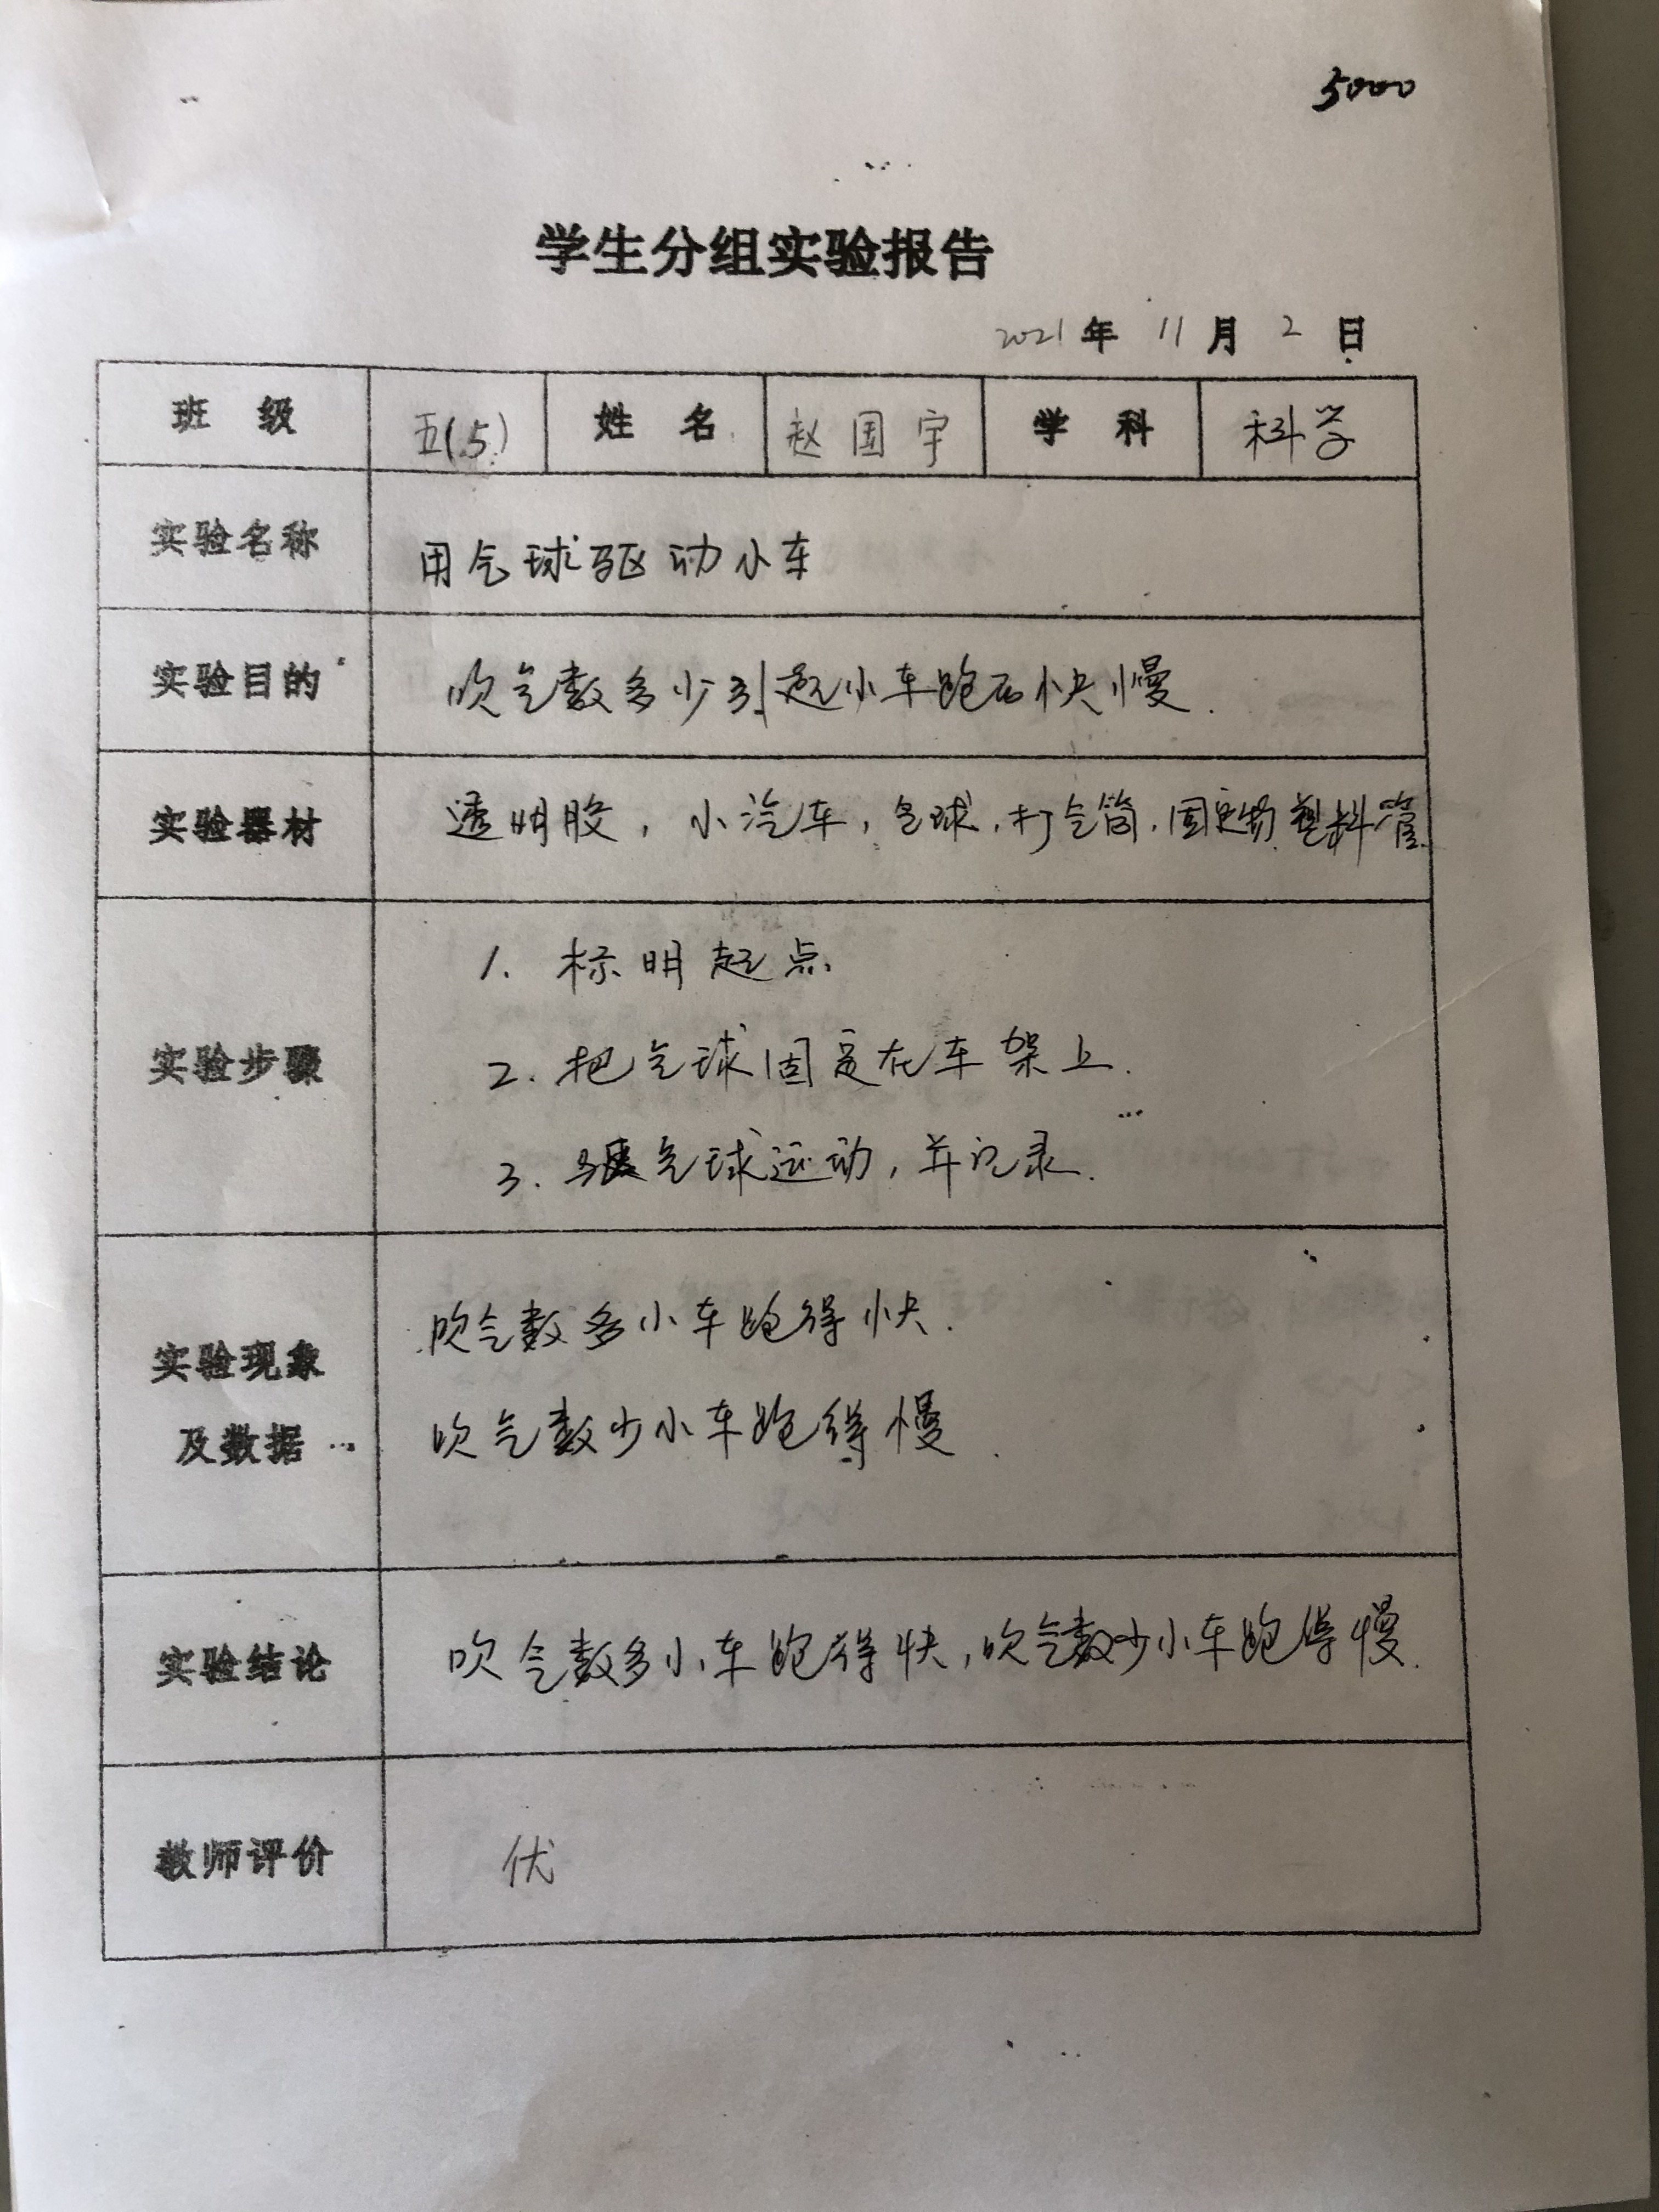 5000
学生分组实验报告
2021年 11月 2日
班 级 五(5) 姓 名 赵国宇 学 科 科学
实验名称 用气球驱动小车
实验目的 吹气数多少引起小车跑的快慢.
实验器材 透明胶, 小汽车, 气球, 打气筒, 固定物 塑料管
实验步骤
1. 标明起点.
2. 把气球固定在车架上.
3. 气球运动, 并记录.
实验现象
及数据
吹气数多小车跑得快.
吹气数少小车跑得慢.
实验结论 吹气数多小车跑得快, 吹气数少小车跑得慢.
教师评价 优